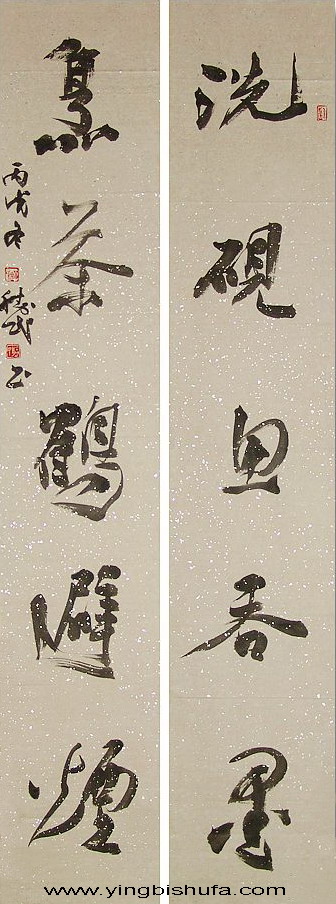 洗硯魚吞墨
烹茶鶴避煙
丙戌冬
书
www.yingbishufa.com